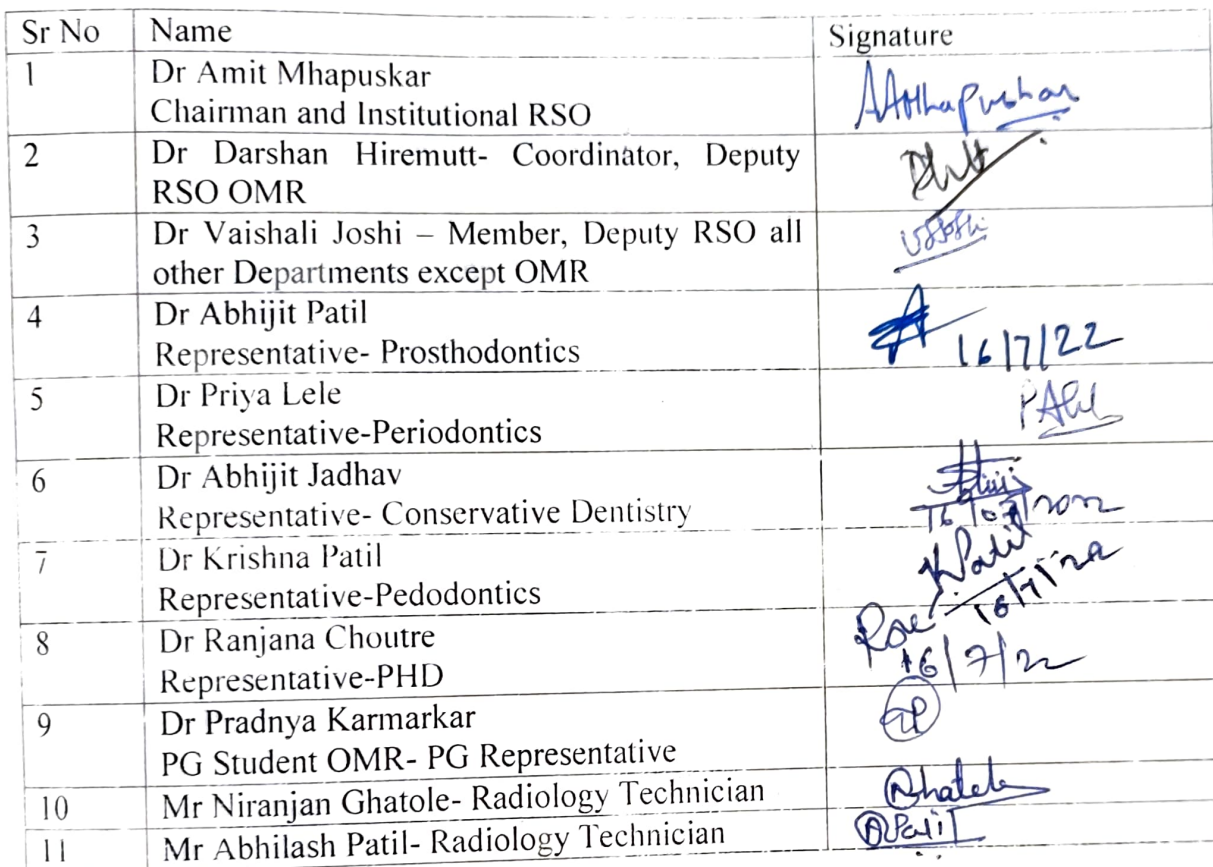 Sr No Name Signature
1 Dr Amit Mhapuskar
Chairman and Institutional RSO
AAMhapuskar
2 Dr Darshan Hiremutt- Coordinator, Deputy
RSO OMR
3 Dr Vaishali Joshi – Member, Deputy RSO all
other Departments except OMR
4 Dr Abhijit Patil
Representative- Prosthodontics
16/7/22
5 Dr Priya Lele
Representative-Periodontics
6 Dr Abhijit Jadhav
Representative- Conservative Dentistry
16/07/2022
7 Dr Krishna Patil
Representative-Pedodontics
KPatil
16/7/22
8 Dr Ranjana Choutre
Representative-PHD
16/7/22
9 Dr Pradnya Karmarkar
PG Student OMR- PG Representative
10 Mr Niranjan Ghatole- Radiology Technician
11 Mr Abhilash Patil- Radiology Technician
APatil